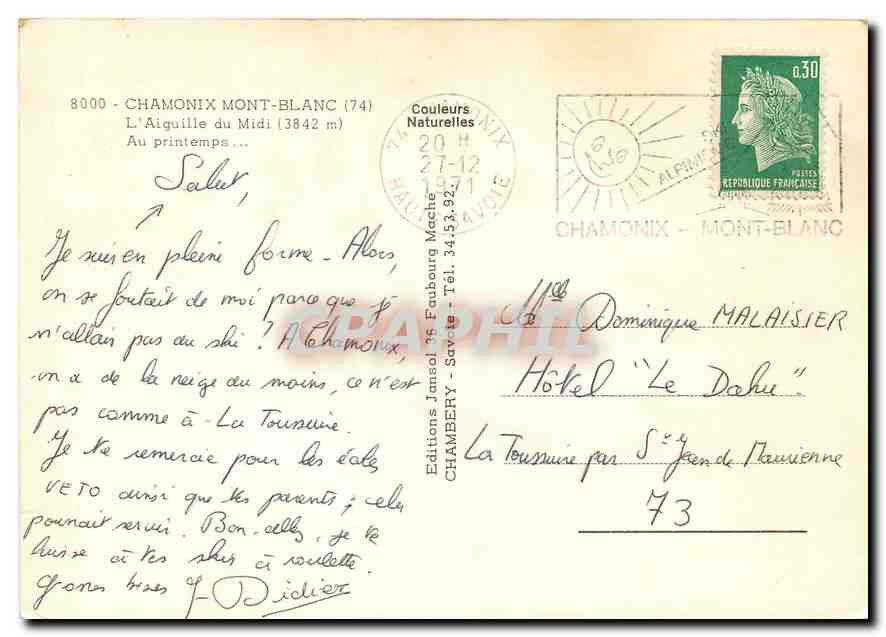 8000 - CHAMONIX MONT-BLANC (74)
L'Aiguille du Midi (3842 m)
Au printemps...
Couleurs
Naturelles
74 CHAMONIX
20 H
27-12
1971
HAUTE SAVOIE
ALPINISME
CHAMONIX - MONT-BLANC
0,30
POSTES
REPUBLIQUE FRANÇAISE
Salut,
Je suis en pleine forme - Alors,
on se foutait de moi parce que je
n'allais pas au ski ? A Chamonix,
on a de la neige au moins, ce n'est
pas comme à La Toussuire.
Je te remercie pour les écoles
VETO ainsi que tes parents ; cela
pourrait servir. Bon, allez, je te
laisse à tes skis à roulette.
Grosses bises Didier
Editions Jansol 36 Faubourg Maché
CHAMBERY - Savoie - Tél. 34.53.92.
CPARPHIL
Melle Dominique MALAISIER
Hôtel "Le Dahu".
La Toussuire par St Jean de Maurienne
73